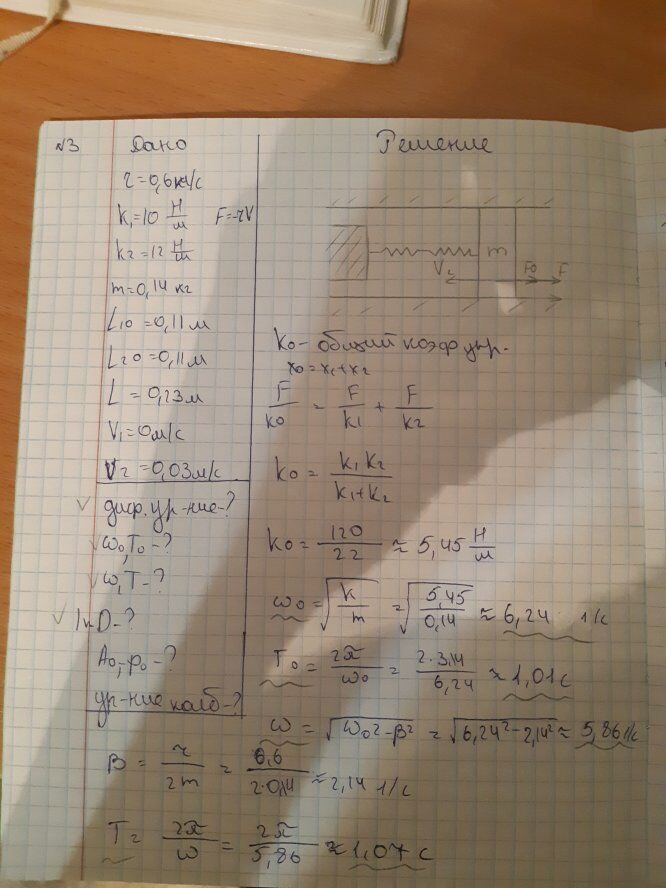 №3 Дано Решение
r = 0,6 кг/с
k₁ = 10 Н/м F = -rV
k₂ = 12 Н/м
m = 0,14 кг
L₁₀ = 0,11 м
L₂₀ = 0,11 м
L = 0,23 м
V₁ = 0 м/с
V₂ = 0,03 м/с
диф. ур-ние - ?
ω₀, T₀ - ?
ω, T - ?
ln D - ?
A₀, φ₀ - ?
ур-ние колеб - ?
m
V₂ F₀ F
k₀ - общий коэф упр.
x₀ = x₁ + x₂
F/k₀ = F/k₁ + F/k₂
k₀ = k₁k₂/(k₁+k₂)
k₀ = 120/22 ≈ 5,45 Н/м
ω₀ = √(k/m) = √(5,45/0,14) ≈ 6,24 1/с
T₀ = 2π/ω₀ = 2·3,14/6,24 ≈ 1,01 с
ω = √(ω₀² - β²) = √(6,24² - 2,14²) ≈ 5,86 1/с
β = r/2m = 0,6/2·0,14 ≈ 2,14 1/с
T = 2π/ω = 2π/5,86 ≈ 1,07 с